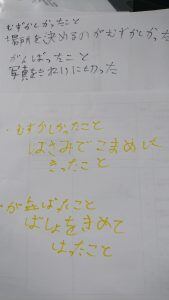 むずかしかったこと
場所を決めるのがむずかしかった
がんばったこと
写真をきれいに切った
・むずかしかったこと
はさみでこまめに
きったこと
・がんばったこと
ばしょをきめて
はったこと